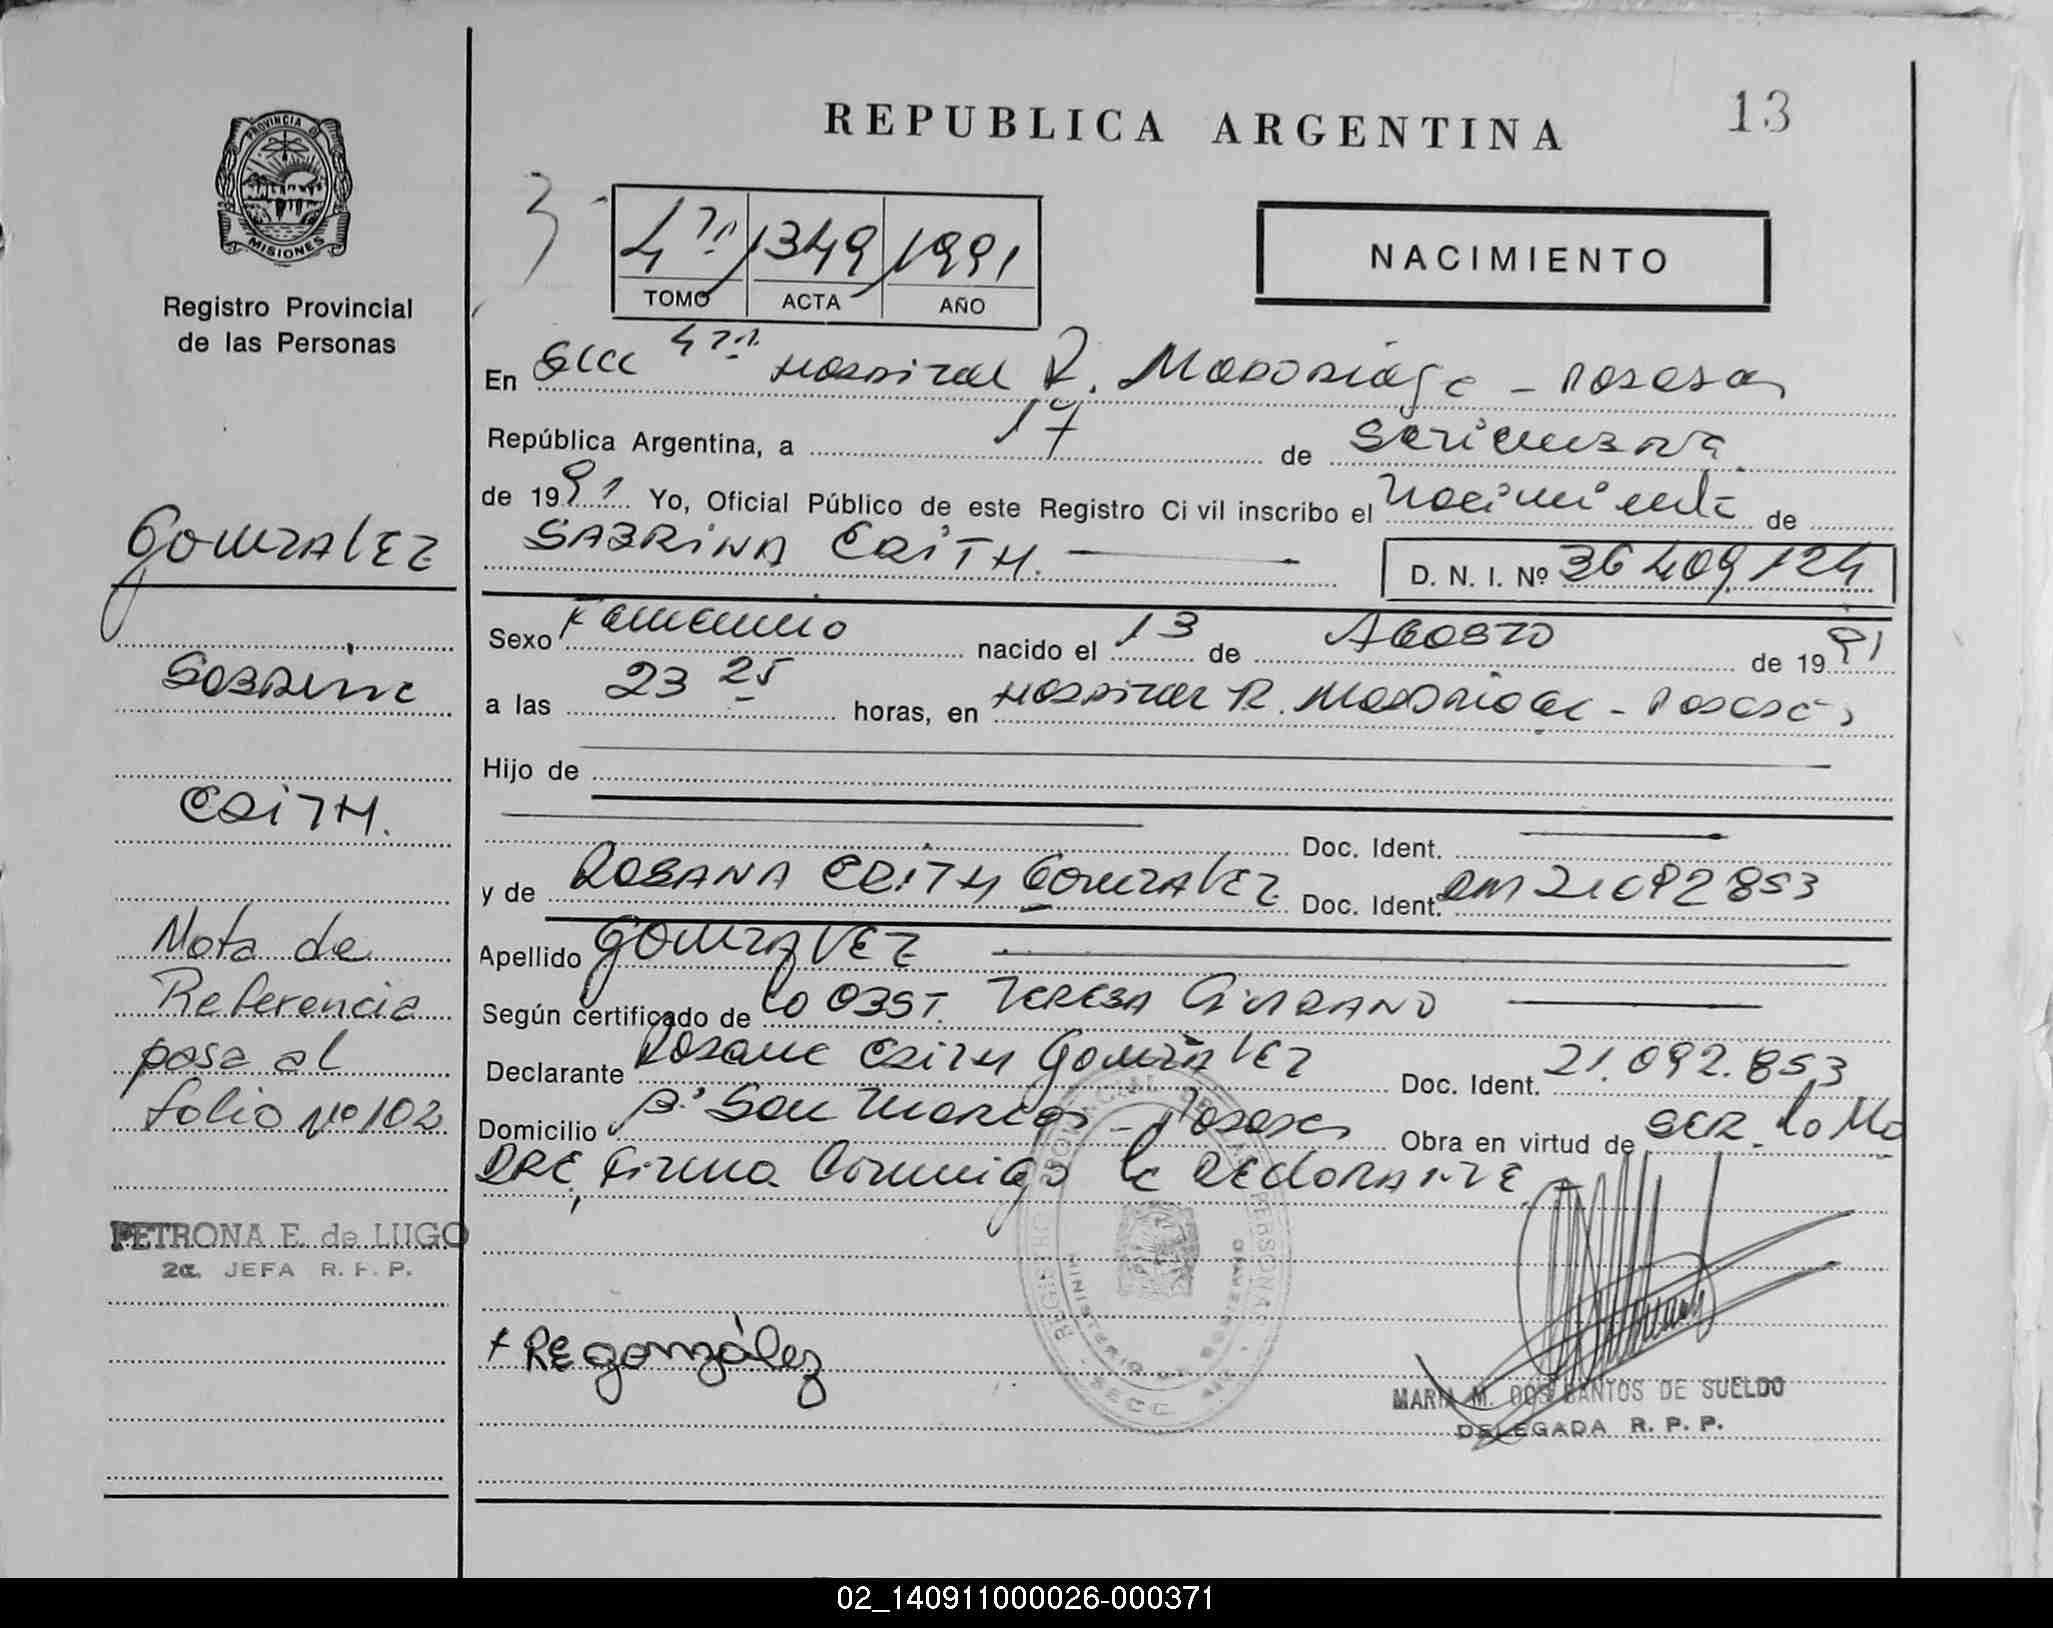 REPUBLICA ARGENTINA
13
PROVINCIA DE
MISIONES
Registro Provincial
de las Personas
3
4ta 1349 1991
TOMO ACTA AÑO
NACIMIENTO
En Secc 4ta Hospital R. Madariaga - Posadas
República Argentina, a 17 de Setiembre
de 1991 Yo, Oficial Público de este Registro Civil inscribo el Nacimiento de
SABRINA EDITH.
D. N. I. Nº 36409124
Sexo Femenino nacido el 13 de Agosto de 1991
a las 23 25 horas, en Hospital R. Madariaga - Posadas
Hijo de
Doc. Ident.
y de ROSANA EDITH GONZALEZ Doc. Ident. DNI 21092853
Apellido GONZALEZ
Según certificado de la OBST. TERESA
Declarante Rosana Edith González Doc. Ident. 21.092.853
Domicilio Bº San Marcos - Posadas Obra en virtud de SER la MA
DRE, Firma Conmigo la declarante
GONZALEZ
Sabrina
EDITH.
Nota de
Referencia
pasa al
folio Nº 102
PETRONA E. de LUGO
2a. JEFA R. P. P.
REGISTRO PROVINCIAL DE LAS PERSONAS
MINISTERIO DE GOBIERNO
SECC
+ RE González
MARIA M. DOS SANTOS DE SUELDO
DELEGADA R. P. P.
02_140911000026-000371